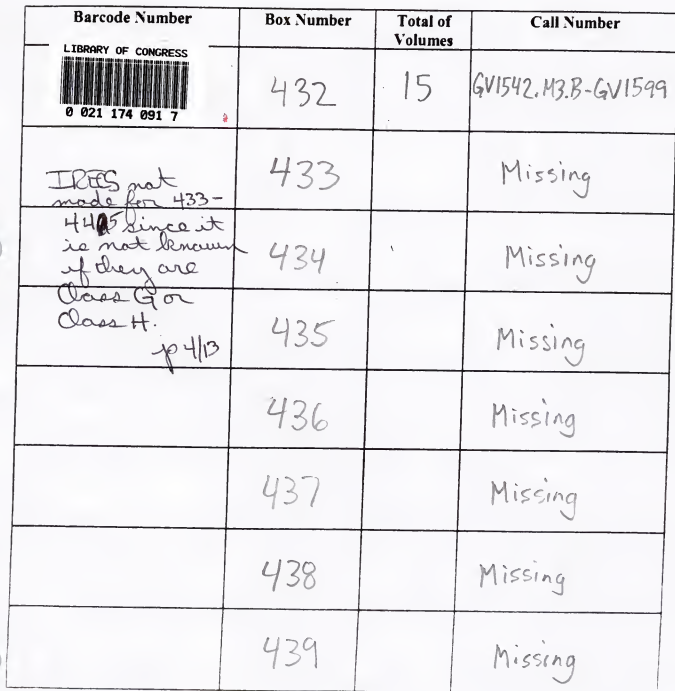 Barcode Number Box Number Total of Volumes Call Number
LIBRARY OF CONGRESS
0 021 174 091 7
432 15 GV1542.M3.B-GV1599
433 Missing
IREES not
made for 433-
445 since it
is not known
if they are
Class G or
Class H.
4/13
434 Missing
435 Missing
436 Missing
437 Missing
438 Missing
439 Missing